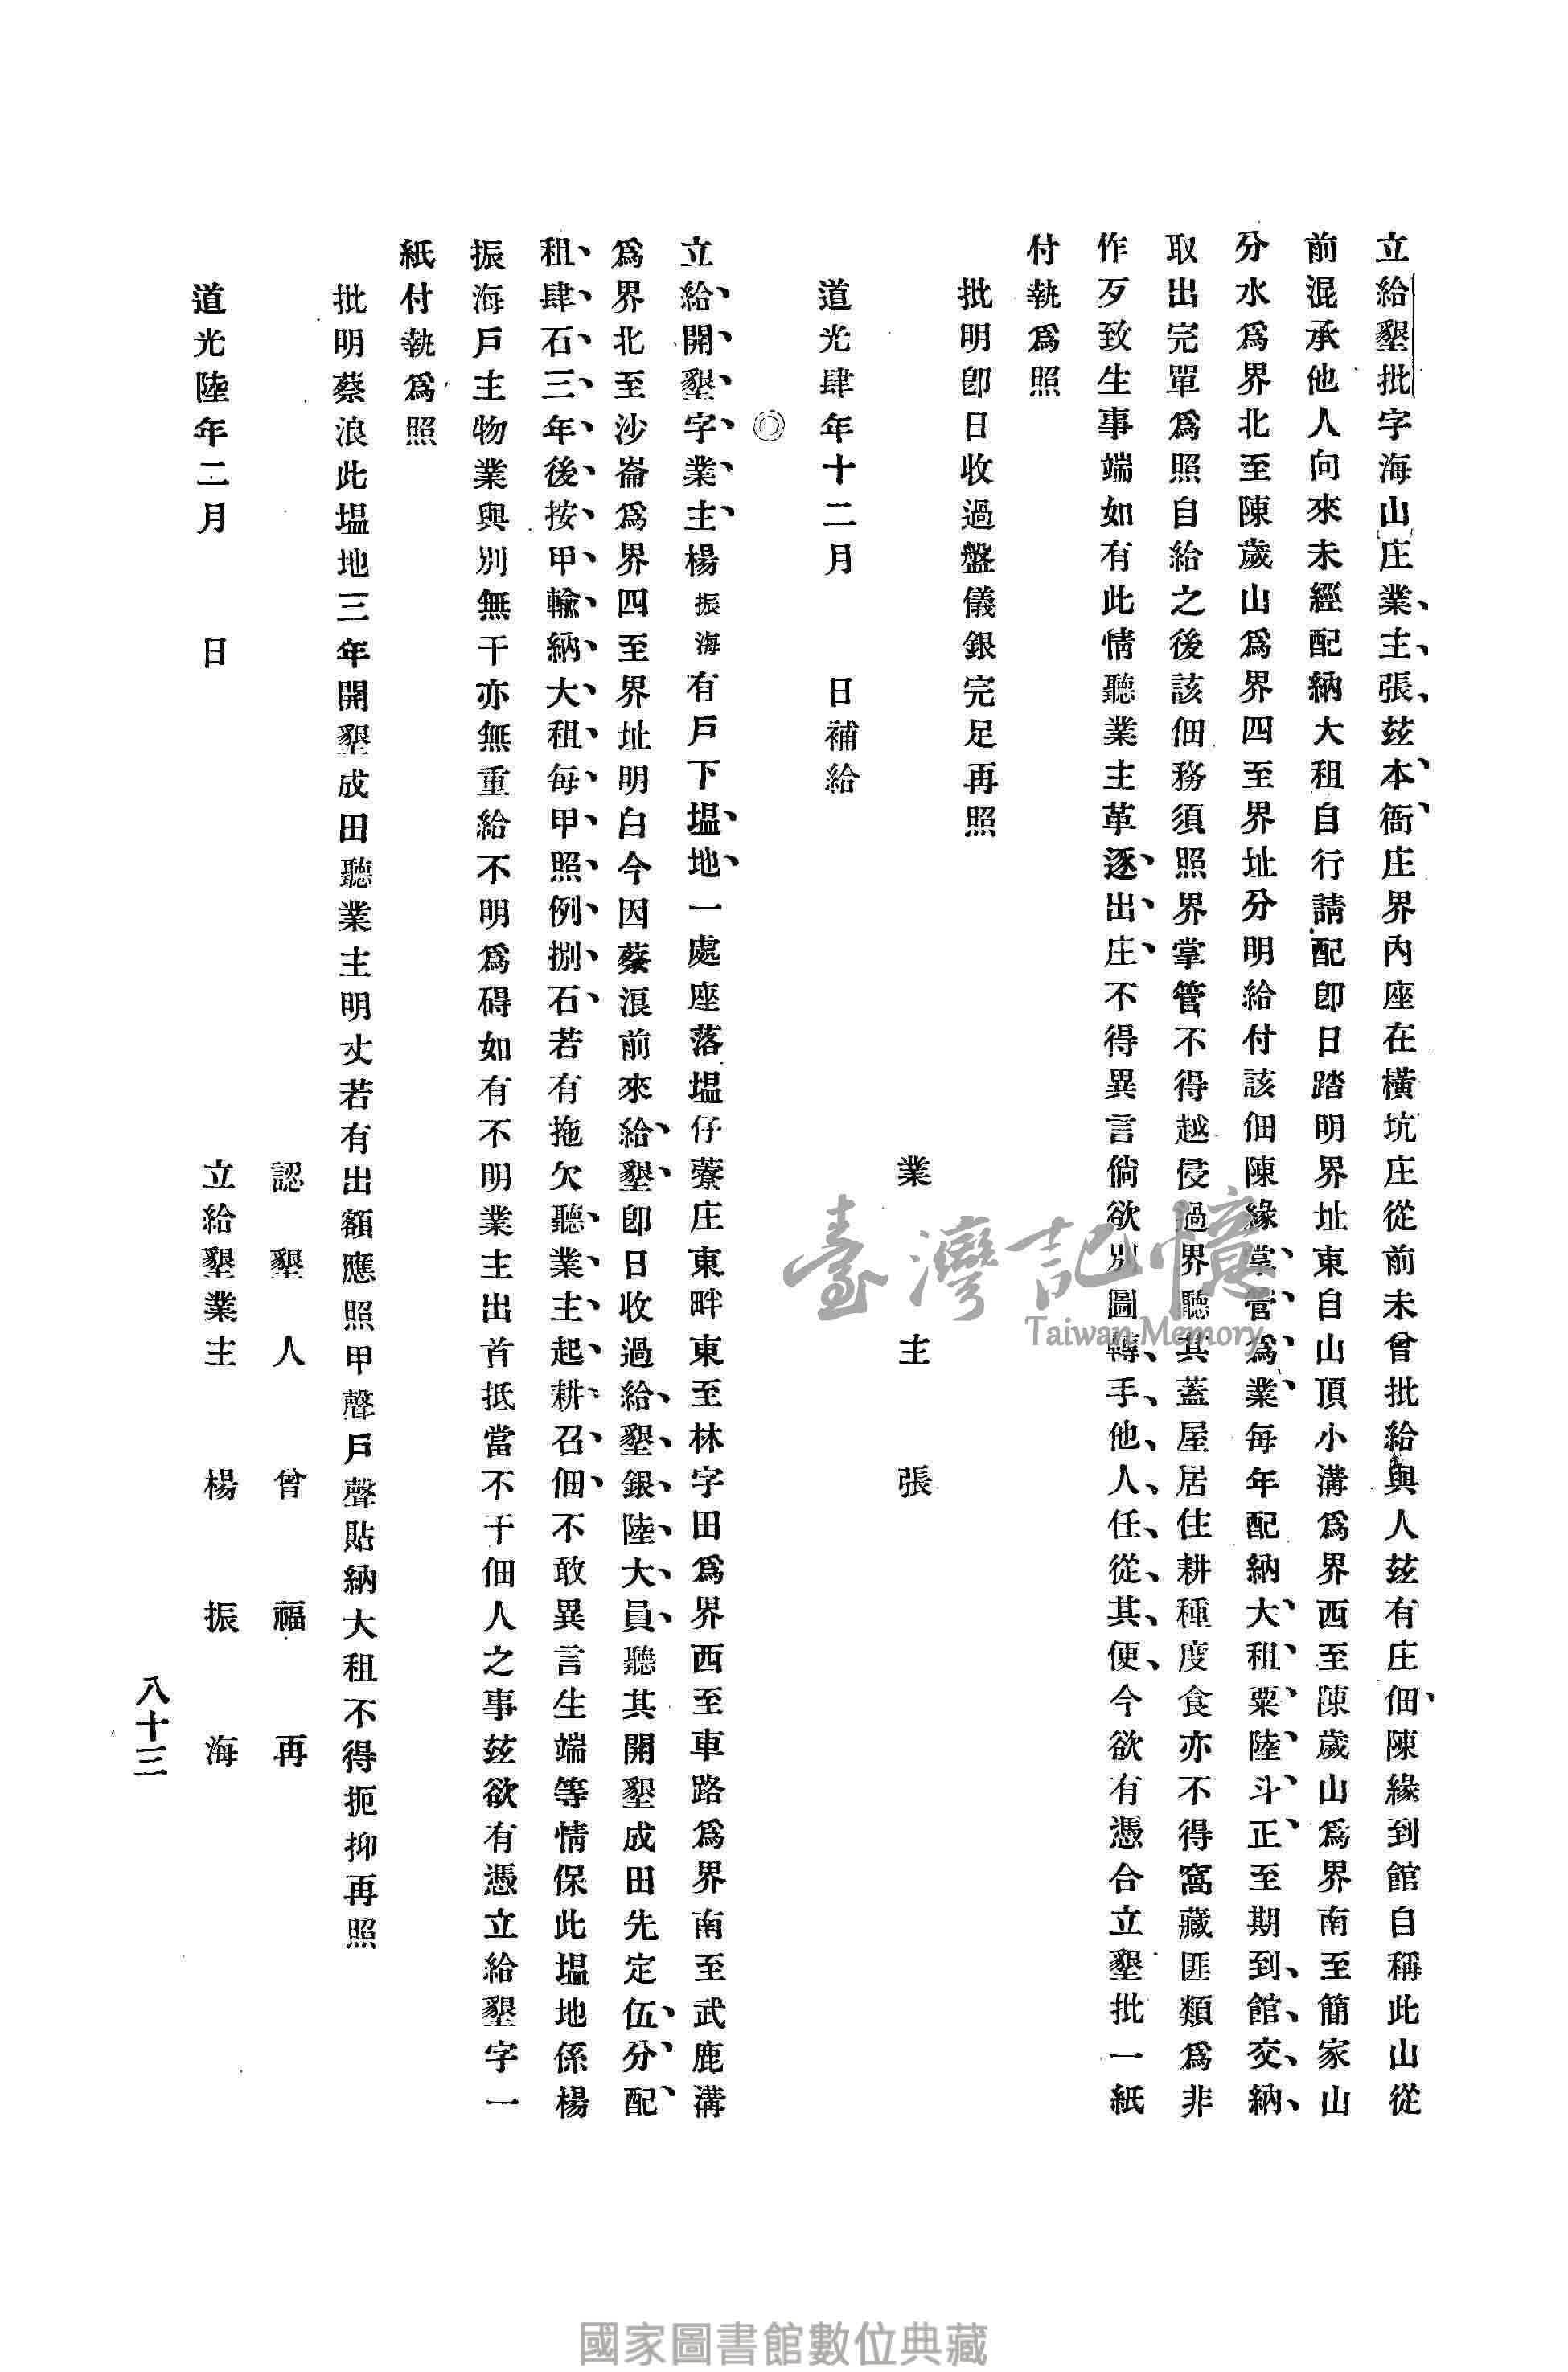 立給墾批字海山庄業主張茲本衙庄界內座在橫坑庄從前未曾批給與人茲有庄佃陳緣到館自稱此山從
前混承他人向來未經配納大租自行請配卽日踏明界址東自山頂小溝爲界西至陳歲山爲界南至簡家山
分水爲界北至陳歲山爲界四至界址分明給付該佃陳緣掌管爲業每年配納大租粟陸斗正至期到館交納
取出完單爲照自給之後該佃務須照界掌管不得越侵過界聽其蓋屋居住耕種度食亦不得窩藏匪類爲非
作歹致生事端如有此情聽業主革逐出庄不得異言倘欲別圖轉手他人任從其便今欲有憑合立墾批一紙
付執爲照
批明卽日收過盤儀銀完足再照
業主張
道光肆年十二月　日補給
◎
立給開墾字業主楊振海有戶下塭地一處座落塭仔藔庄東畔東至林字田爲界西至車路爲界南至武鹿溝
爲界北至沙崙爲界四至界址明白今因蔡浪前來給墾卽日收過給墾銀陸大員聽其開墾成田先定伍分配
租肆石三年後按甲輸納大租每甲照例捌石若有拖欠聽業主起耕召佃不敢異言生端等情保此塭地係楊
振海戶主物業與別無干亦無重給不明爲碍如有不明業主出首抵當不干佃人之事茲欲有憑立給墾字一
紙付執爲照
批明蔡浪此塭地三年開墾成田聽業主明丈若有出額應照甲聲戶聲貼納大租不得扼抑再照
認墾人曾福再
道光陸年二月　日
立給墾業主楊振海
八十三
臺灣記憶
Taiwan Memory
國家圖書館數位典藏